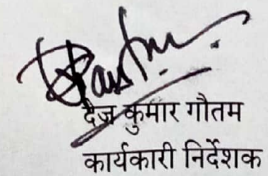 दैज कुमार गौतम
कार्यकारी निर्देशक